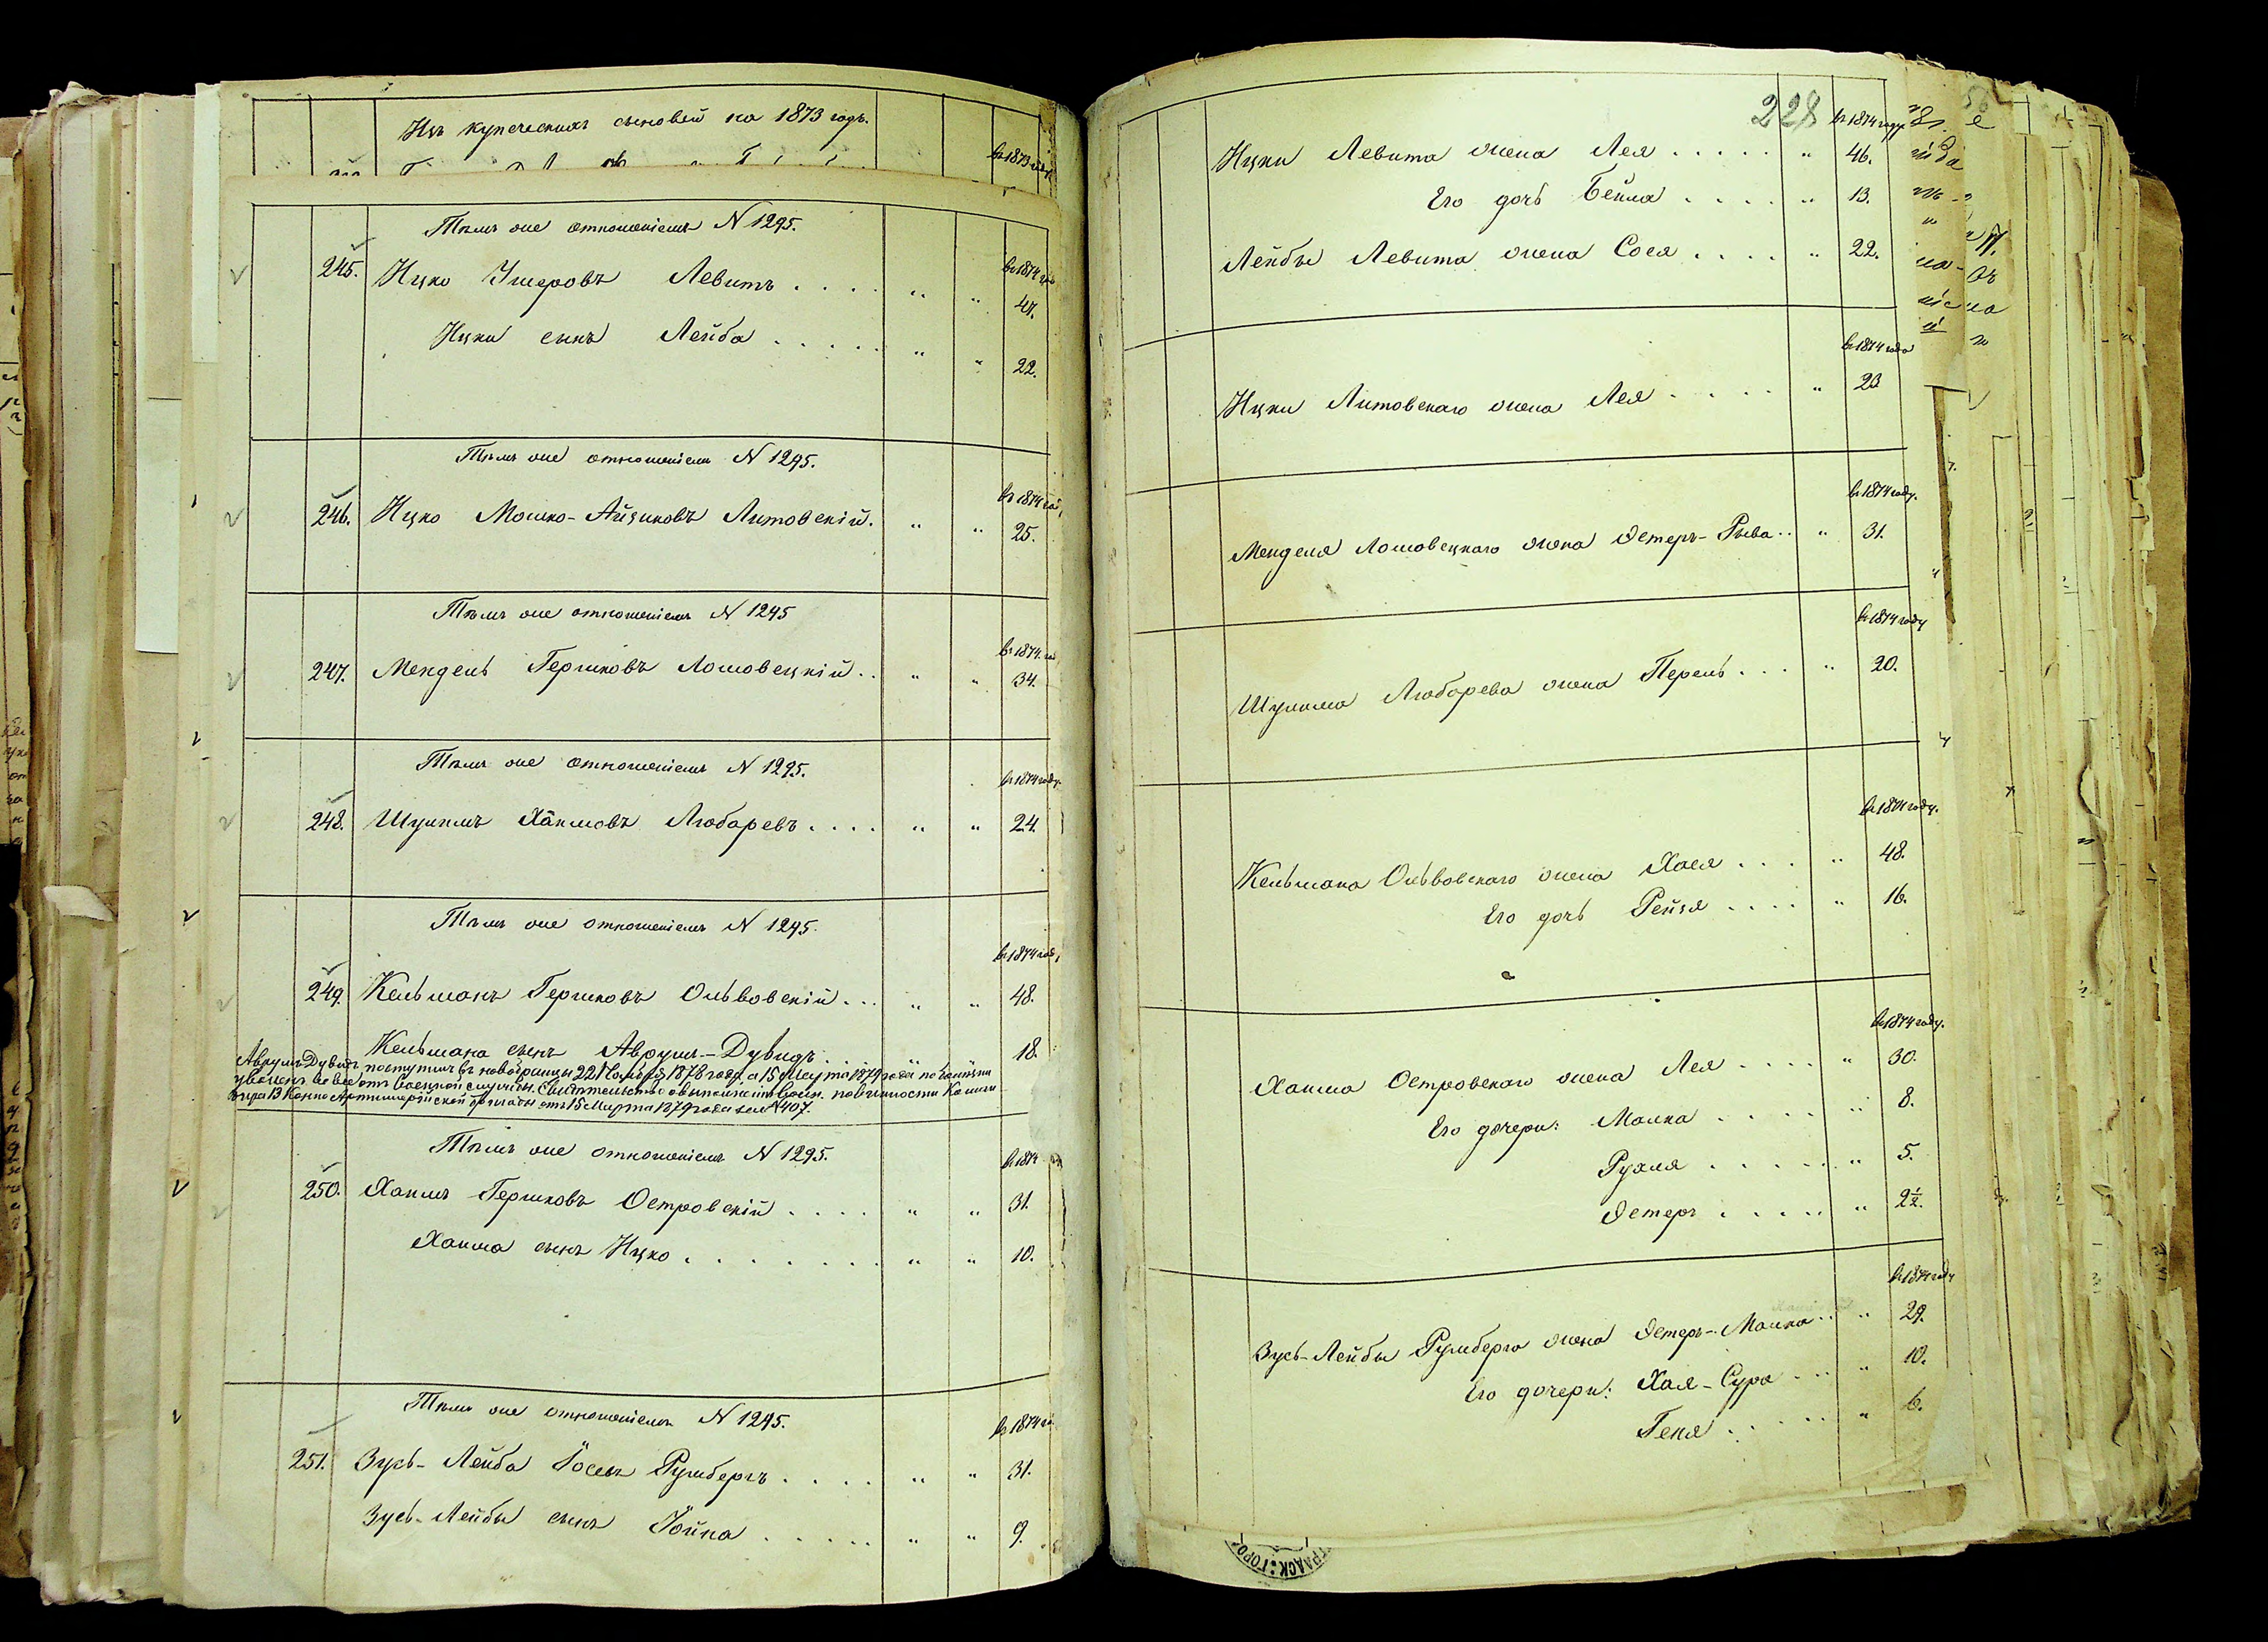 Изъ купеческихъ сыновей на 1873 годъ.
въ 1873 году
Тѣмъ же отношеніемъ N 1295.
въ 1874 году
245. Ицко Умеровъ Левитъ . . . . " " 47.
Ицки сынъ Лейба . . . . . " " 22.
Тѣмъ же отношеніемъ N 1295.
въ 1874 году
246. Ицко Мошко-Айзиковъ Литовскій. " " 25.
Тѣмъ же отношеніемъ N 1295
въ 1874 год
247. Мендель Гершковъ Лошовецкій . . " " 34.
Тѣмъ же отношеніемъ N 1295.
въ 1874 году
248. Шулимъ Хаимовъ Любаревъ . . . . " " 24.
Тѣмъ же отношеніемъ N 1295.
въ 1874 году
249. Кельманъ Гершковъ Ольвовскій . . . " " 48.
Кельмана сынъ Аврумъ-Дувидъ . . . . 18.
Аврумъ Дувидъ поступилъ въ новобранцы 22 Ноября 1878 года, а 15 Марта 1879 года по болѣзни
уволенъ вовсе отъ военной службы. Свидѣтельство о выполненіи воин. повинности
13 Конно Артиллерійской бригады отъ 15 Марта 1879 года за N 407.
Тѣмъ же отношеніемъ N 1295.
въ 1874
250. Хаимъ Гершковъ Островскій . . . . " " 31.
Хаима сынъ Ицко . . . . . . . . " " 10.
Тѣмъ же отношеніемъ N 1295.
въ 1874 го
251. Зусь-Лейба Іосевъ Румбергъ . . . . " " 31.
Зусь-Лейбы сынъ Іойна . . . . . . " " 9.
228
въ 1874 году
Ицки Левита жена Лея . . . . . " 46.
Его дочь Бейла . . . . " 13.
Лейбы Левита жена Сося . . . . " 22.
въ 1874 года
Ицки Литовскаго жена Лея . . . . . " 23
въ 1874 году.
Менделя Лошовецкаго жена Эстеръ-Рыва . . " 31.
въ 1874 году
Шулима Любарева жена Перель . . . " 20.
въ 1874 году.
Кельмана Ольвовскаго жена Хася . . . . " 48.
Его дочь Рейзя . . . . " 16.
въ 1874 году.
Хаима Островскаго жена Лея . . . . " 30.
Его дочери: Малка . . . . . " 8.
Рухля . . . . . . " 5.
Эстеръ . . . . . " 2½.
въ 1874 году
Зусь-Лейбы Румберга жена Эстеръ-Малка . . " 29.
Его дочери: Хая-Сура . . . " 10.
Геня . . . . . " 6.
ГРАДСК: ГОРО